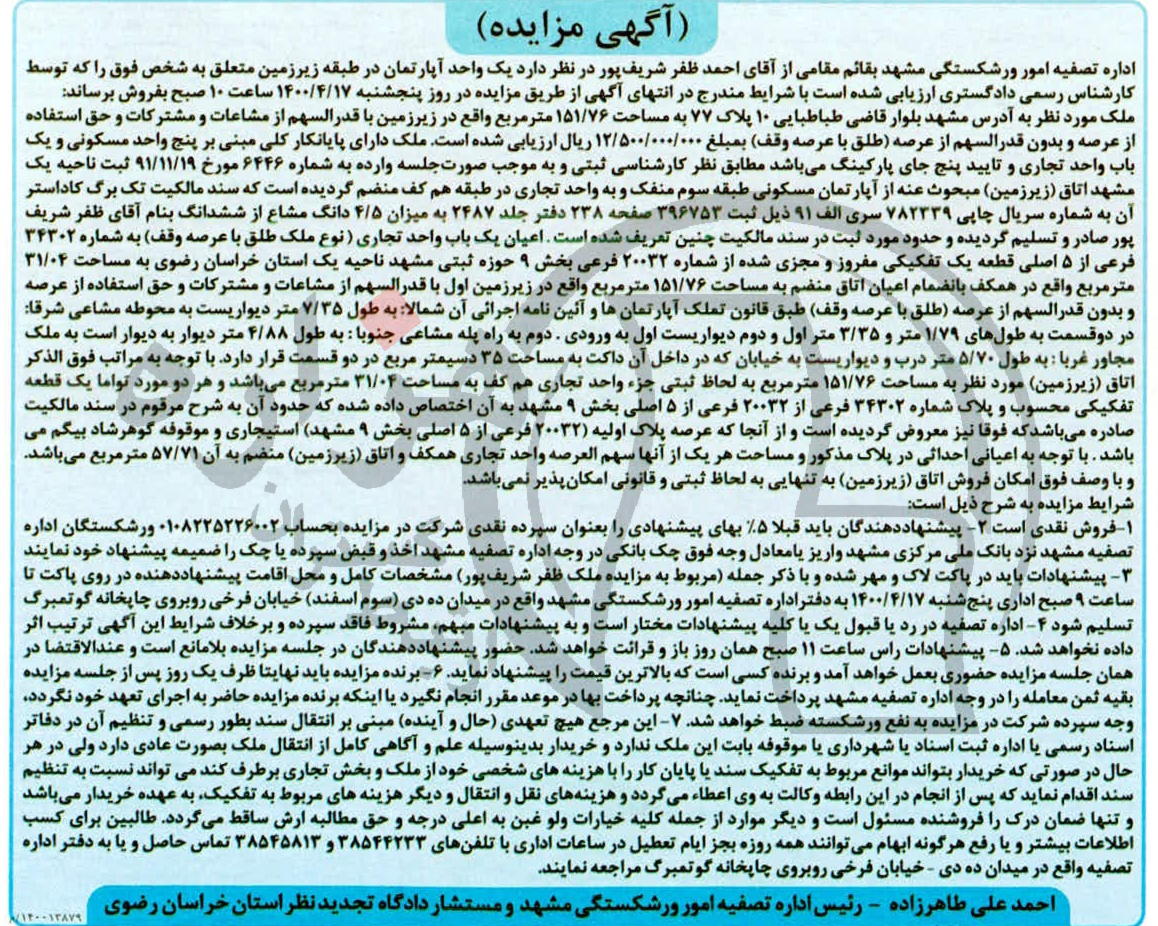 (آگهی مزایده)
اداره تصفیه امور ورشکستگی مشهد بقائم مقامی از آقای احمد ظفر شریف‌پور در نظر دارد یک واحد آپارتمان در طبقه زیرزمین متعلق به شخص فوق را که توسط
کارشناس رسمی دادگستری ارزیابی شده است با شرایط مندرج در انتهای آگهی از طریق مزایده در روز پنجشنبه ۱۴۰۰/۴/۱۷ ساعت ۱۰ صبح بفروش برساند:
ملک مورد نظر به آدرس مشهد بلوار قاضی طباطبایی ۱۰ پلاک ۷۷ به مساحت ۱۵۱/۷۶ مترمربع واقع در زیرزمین با قدرالسهم از مشاعات و مشترکات و حق استفاده
از عرصه و بدون قدرالسهم از عرصه (طلق با عرصه وقف) بمبلغ ۱۲/۵۰۰/۰۰۰/۰۰۰ ریال ارزیابی شده است. ملک دارای پایانکار کلی مبنی بر پنج واحد مسکونی و یک
باب واحد تجاری و تایید پنج جای پارکینگ می‌باشد مطابق نظر کارشناسی ثبتی و به موجب صورت‌جلسه وارده به شماره ۶۴۴۶ مورخ ۹۱/۱۱/۱۹ ثبت ناحیه یک
مشهد اتاق (زیرزمین) مبحوث عنه از آپارتمان مسکونی طبقه سوم منفک و به واحد تجاری در طبقه هم کف منضم گردیده است که سند مالکیت تک برگ کاداستر
آن به شماره سریال چاپی ۷۸۲۳۳۹ سری الف ۹۱ ذیل ثبت ۳۹۶۷۵۳ صفحه ۲۳۸ دفتر جلد ۲۴۸۷ به میزان ۴/۵ دانگ مشاع از ششدانگ بنام آقای ظفر شریف
پور صادر و تسلیم گردیده و حدود مورد ثبت در سند مالکیت چنین تعریف شده است . اعیان یک باب واحد تجاری (نوع ملک طلق با عرصه وقف) به شماره ۳۴۳۰۲
فرعی از ۵ اصلی قطعه یک تفکیکی مفروز و مجزی شده از شماره ۲۰۰۳۲ فرعی بخش ۹ حوزه ثبتی مشهد ناحیه یک استان خراسان رضوی به مساحت ۳۱/۰۴
مترمربع واقع در همکف بانضمام اعیان اتاق منضم به مساحت ۱۵۱/۷۶ مترمربع واقع در زیرزمین اول با قدرالسهم از مشاعات و مشترکات و حق استفاده از عرصه
و بدون قدرالسهم از عرصه (طلق با عرصه وقف) طبق قانون تملک آپارتمان ها و آئین نامه اجرائی آن شمالا: به طول ۷/۳۵ متر دیواریست به محوطه مشاعی شرقا:
در دوقسمت به طول‌های ۱/۷۹ متر و ۳/۳۵ متر اول و دوم دیواریست اول به ورودی . دوم به راه پله مشاعی جنوبا : به طول ۴/۸۸ متر دیوار به دیوار است به ملک
مجاور غربا : به طول ۵/۷۰ متر درب و دیواریست به خیابان که در داخل آن داکت به مساحت ۳۵ دسیمتر مربع در دو قسمت قرار دارد. با توجه به مراتب فوق الذکر
اتاق (زیرزمین) مورد نظر به مساحت ۱۵۱/۷۶ مترمربع به لحاظ ثبتی جزء واحد تجاری هم کف به مساحت ۳۱/۰۴ مترمربع می‌باشد و هر دو مورد تواما یک قطعه
تفکیکی محسوب و پلاک شماره ۳۴۳۰۲ فرعی از ۲۰۰۳۲ فرعی از ۵ اصلی بخش ۹ مشهد به آن اختصاص داده شده که حدود آن به شرح مرقوم در سند مالکیت
صادره می‌باشدکه فوقا نیز معروض گردیده است و از آنجا که عرصه پلاک اولیه (۲۰۰۳۲ فرعی از ۵ اصلی بخش ۹ مشهد) استیجاری و موقوفه گوهرشاد بیگم می
باشد . با توجه به اعیانی احداثی در پلاک مذکور و مساحت هر یک از آنها سهم العرصه واحد تجاری همکف و اتاق (زیرزمین) منضم به آن ۵۷/۷۱ مترمربع می‌باشد.
و با وصف فوق امکان فروش اتاق (زیرزمین) به تنهایی به لحاظ ثبتی و قانونی امکان‌پذیر نمی‌باشد.
شرایط مزایده به شرح ذیل است:
۱-فروش نقدی است ۲- پیشنهاددهندگان باید قبلا ۵٪ بهای پیشنهادی را بعنوان سپرده نقدی شرکت در مزایده بحساب ۰۱۰۸۲۲۵۲۲۶۰۰۲ ورشکستگان اداره
تصفیه مشهد نزد بانک ملی مرکزی مشهد واریز یامعادل وجه فوق چک بانکی در وجه اداره تصفیه مشهد اخذ و قبض سپرده یا چک را ضمیمه پیشنهاد خود نمایند
۳- پیشنهادات باید در پاکت لاک و مهر شده و با ذکر جمله (مربوط به مزایده ملک ظفر شریف‌پور) مشخصات کامل و محل اقامت پیشنهاددهنده در روی پاکت تا
ساعت ۹ صبح اداری پنج‌شنبه ۱۴۰۰/۴/۱۷ به دفتراداره تصفیه امور ورشکستگی مشهد واقع در میدان ده دی (سوم اسفند) خیابان فرخی روبروی چاپخانه گوتمبرگ
تسلیم شود ۴- اداره تصفیه در رد یا قبول یک یا کلیه پیشنهادات مختار است و به پیشنهادات مبهم، مشروط فاقد سپرده و برخلاف شرایط این آگهی ترتیب اثر
داده نخواهد شد. ۵- پیشنهادات راس ساعت ۱۱ صبح همان روز باز و قرائت خواهد شد. حضور پیشنهاددهندگان در جلسه مزایده بلامانع است و عندالاقتضا در
همان جلسه مزایده حضوری بعمل خواهد آمد و برنده کسی است که بالاترین قیمت را پیشنهاد نماید. ۶-برنده مزایده باید نهایتا ظرف یک روز پس از جلسه مزایده
بقیه ثمن معامله را در وجه اداره تصفیه مشهد پرداخت نماید. چنانچه پرداخت بها در موعد مقرر انجام نگیرد یا اینکه برنده مزایده حاضر به اجرای تعهد خود نگردد،
وجه سپرده شرکت در مزایده به نفع ورشکسته ضبط خواهد شد. ۷- این مرجع هیچ تعهدی (حال و آینده) مبنی بر انتقال سند بطور رسمی و تنظیم آن در دفاتر
اسناد رسمی یا اداره ثبت اسناد یا شهرداری یا موقوفه بابت این ملک ندارد و خریدار بدینوسیله علم و آگاهی کامل از انتقال ملک بصورت عادی دارد ولی در هر
حال در صورتی که خریدار بتواند موانع مربوط به تفکیک سند یا پایان کار را با هزینه های شخصی خود از ملک و بخش تجاری برطرف کند می تواند نسبت به تنظیم
سند اقدام نماید که پس از انجام در این رابطه وکالت به وی اعطاء می‌گردد و هزینه‌های نقل و انتقال و دیگر هزینه های مربوط به تفکیک، به عهده خریدار می‌باشد
و تنها ضمان درک را فروشنده مسئول است و دیگر موارد از جمله کلیه خیارات ولو غبن به اعلی درجه و حق مطالبه ارش ساقط می‌گردد. طالبین برای کسب
اطلاعات بیشتر و یا رفع هرگونه ابهام می‌توانند همه روزه بجز ایام تعطیل در ساعات اداری با تلفن‌های ۳۸۵۴۴۲۳۳ و ۳۸۵۴۵۸۱۳ تماس حاصل و یا به دفتر اداره
تصفیه واقع در میدان ده دی -خیابان فرخی روبروی چاپخانه گوتمبرگ مراجعه نمایند.
احمد علی طاهرزاده - رئیس اداره تصفیه امور ورشکستگی مشهد و مستشار دادگاه تجدید نظر استان خراسان رضوی
۱۴۰۰۱۳۸۷۹/